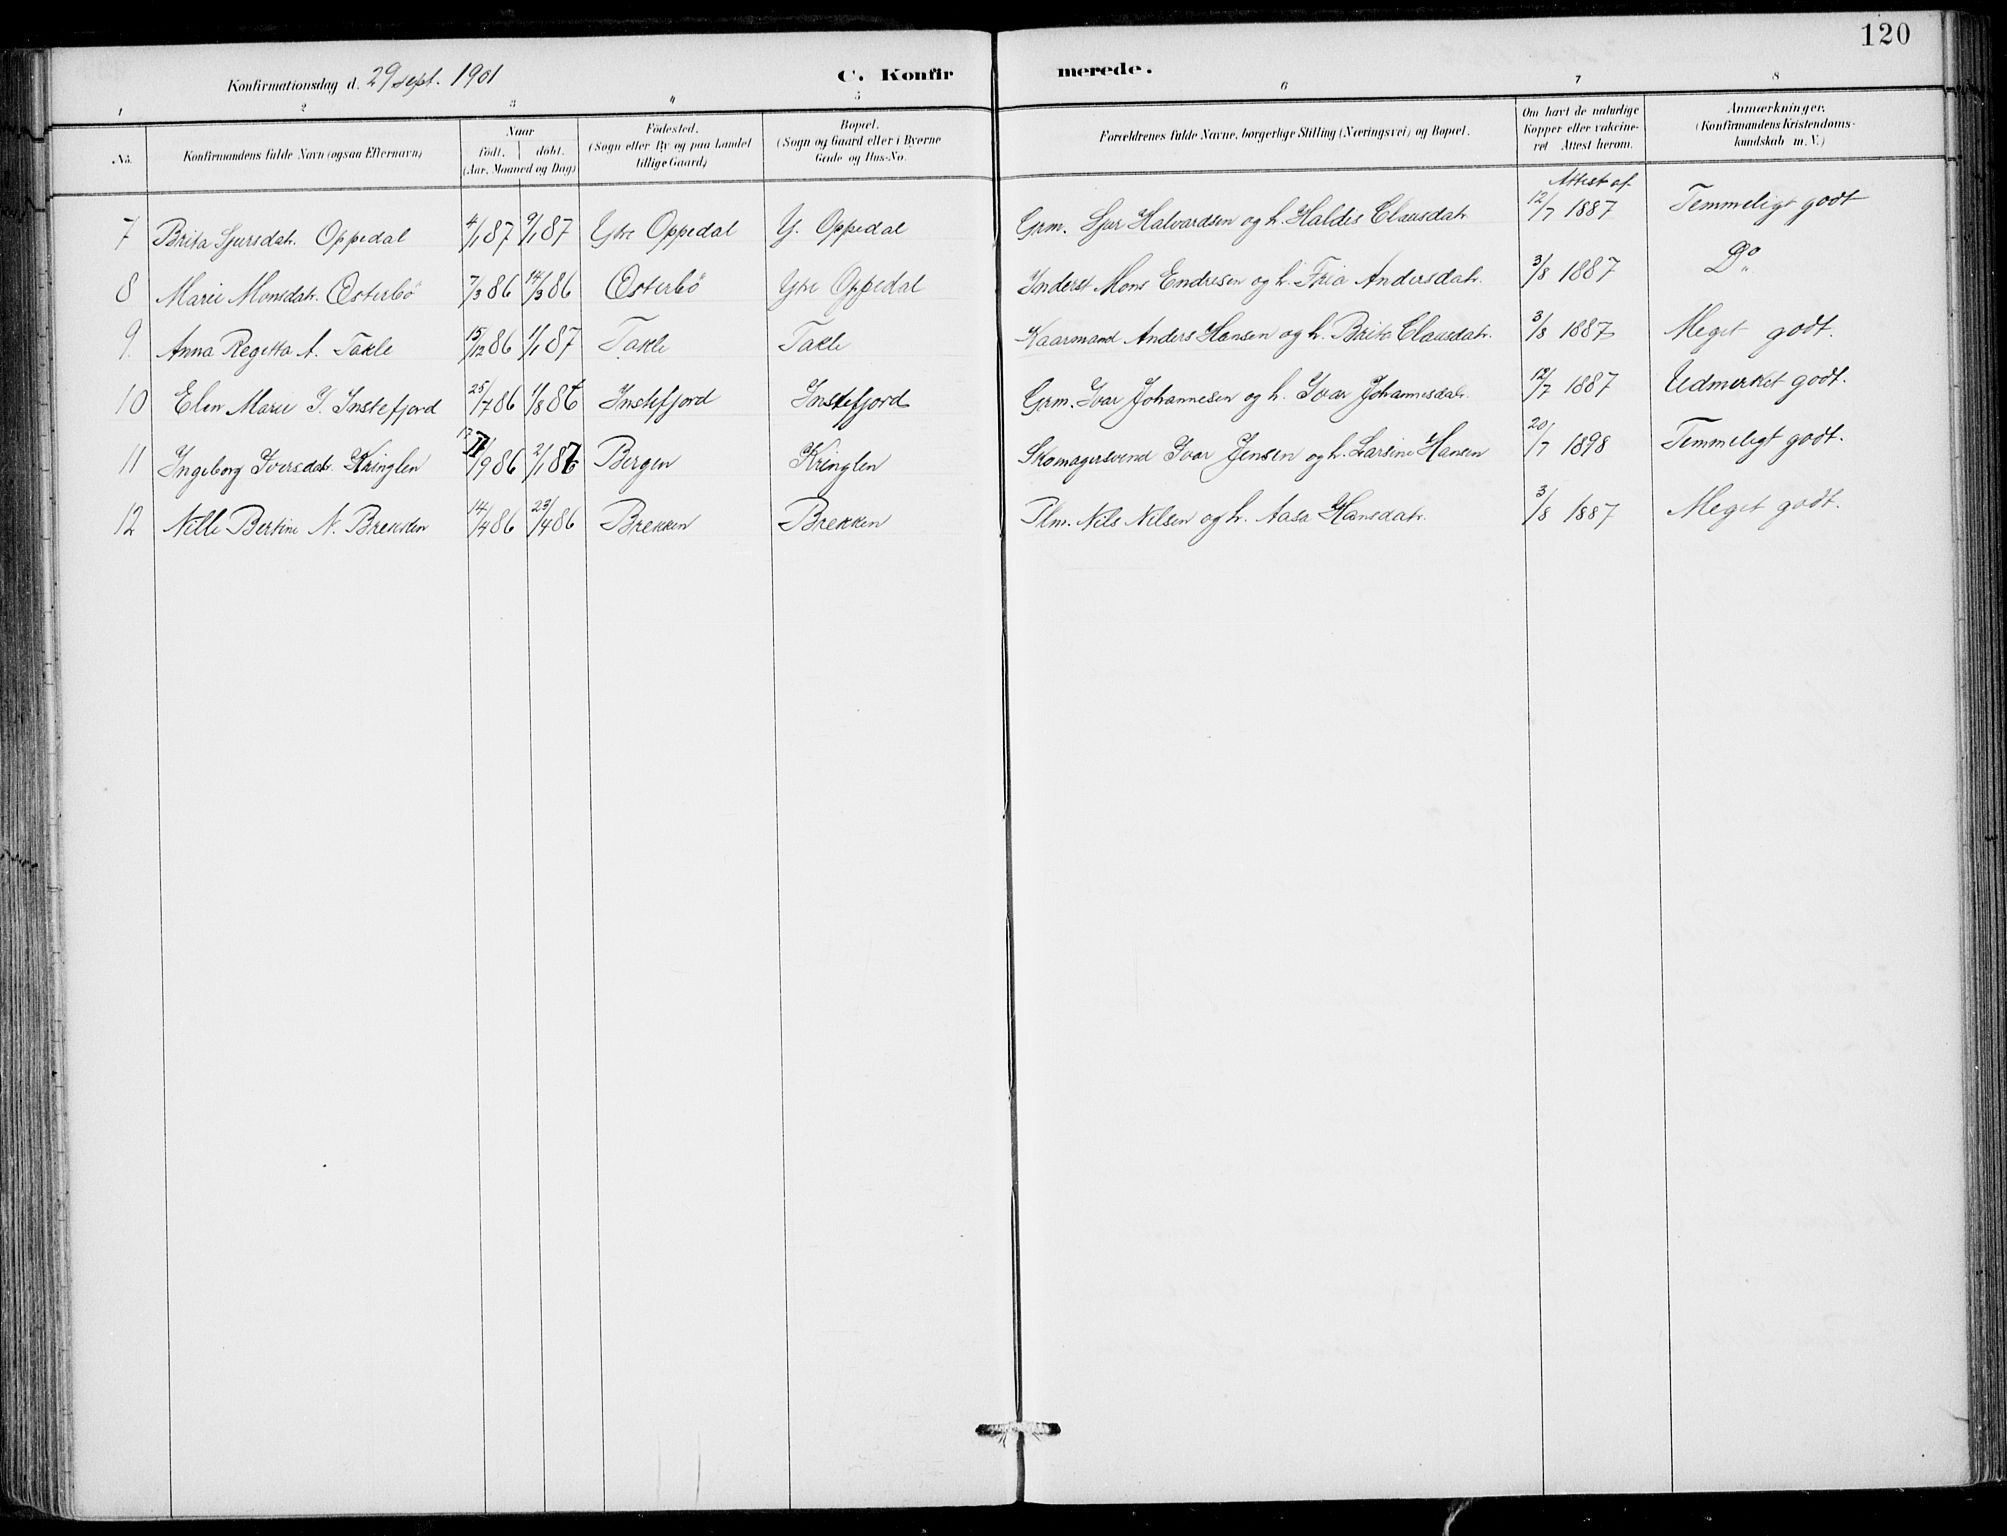 120
Konfirmationsdag d. 29 sept. 1901 C. Konfirmerede.
1 2 3 4 5 6 7 8
No. Konfirmandens fulde Navn (ogsaa Efternavn) Naar født. døbt. (Aar, Maaned og Dag) Fødested. (Sogn eller By og paa Landet tillige Gaard) Bopæl. (Sogn og Gaard eller i Byerne Gade og Hus-No. Forældrenes fulde Navne, borgerlige Stilling (Næringsvei) og Bopæl. Om havt de naturlige Kopper eller vakcineret Attest herom. Anmærkninger. (Konfirmandens Kristendomskundskab m. V.)
7 Brita Sjursdatr. Oppedal 4/1 87 9/1 87 Ytre Oppedal Y. Oppedal Grm. Sjur Halvardsen og h. Haldis Clausdatr. Attest af 12/7 1887 Temmeligt godt
8 Marie Monsdatr. Østerbö 7/3 86 14/3 86 Østerbö Ytre Oppedal Inderst Mons Endresen og h. Andersdatr. 3/8 1887 Do
9. Anna Regitta A. Takle 15/12 86 1/1 87 Takle Takle Kaarmand Anders Hansen og h. Brita Clausdatr. 3/8 1887 Meget godt.
10 Elen Marie I. Instefjord 25/7 86 1/8 86 Instefjord Instefjord Grm. Ivar Johannesen og h. Johannesdatr. 12/7 1887 Udmerket godt.
11 Ingeborg Iversdatr. Kringlen /9 86 2/1 87 Bergen Kringlen Skomagersvend Ivar Jensen og h. Larsine Hansen 20/7 1898 Temmeligt godt.
12 Nille Bertine N. Brekken 14/4 86 23/4 86 Brekken Brekken Plm. Nils Nilsen og h. Aasa Hansdatr. 3/8 1887 Meget godt.